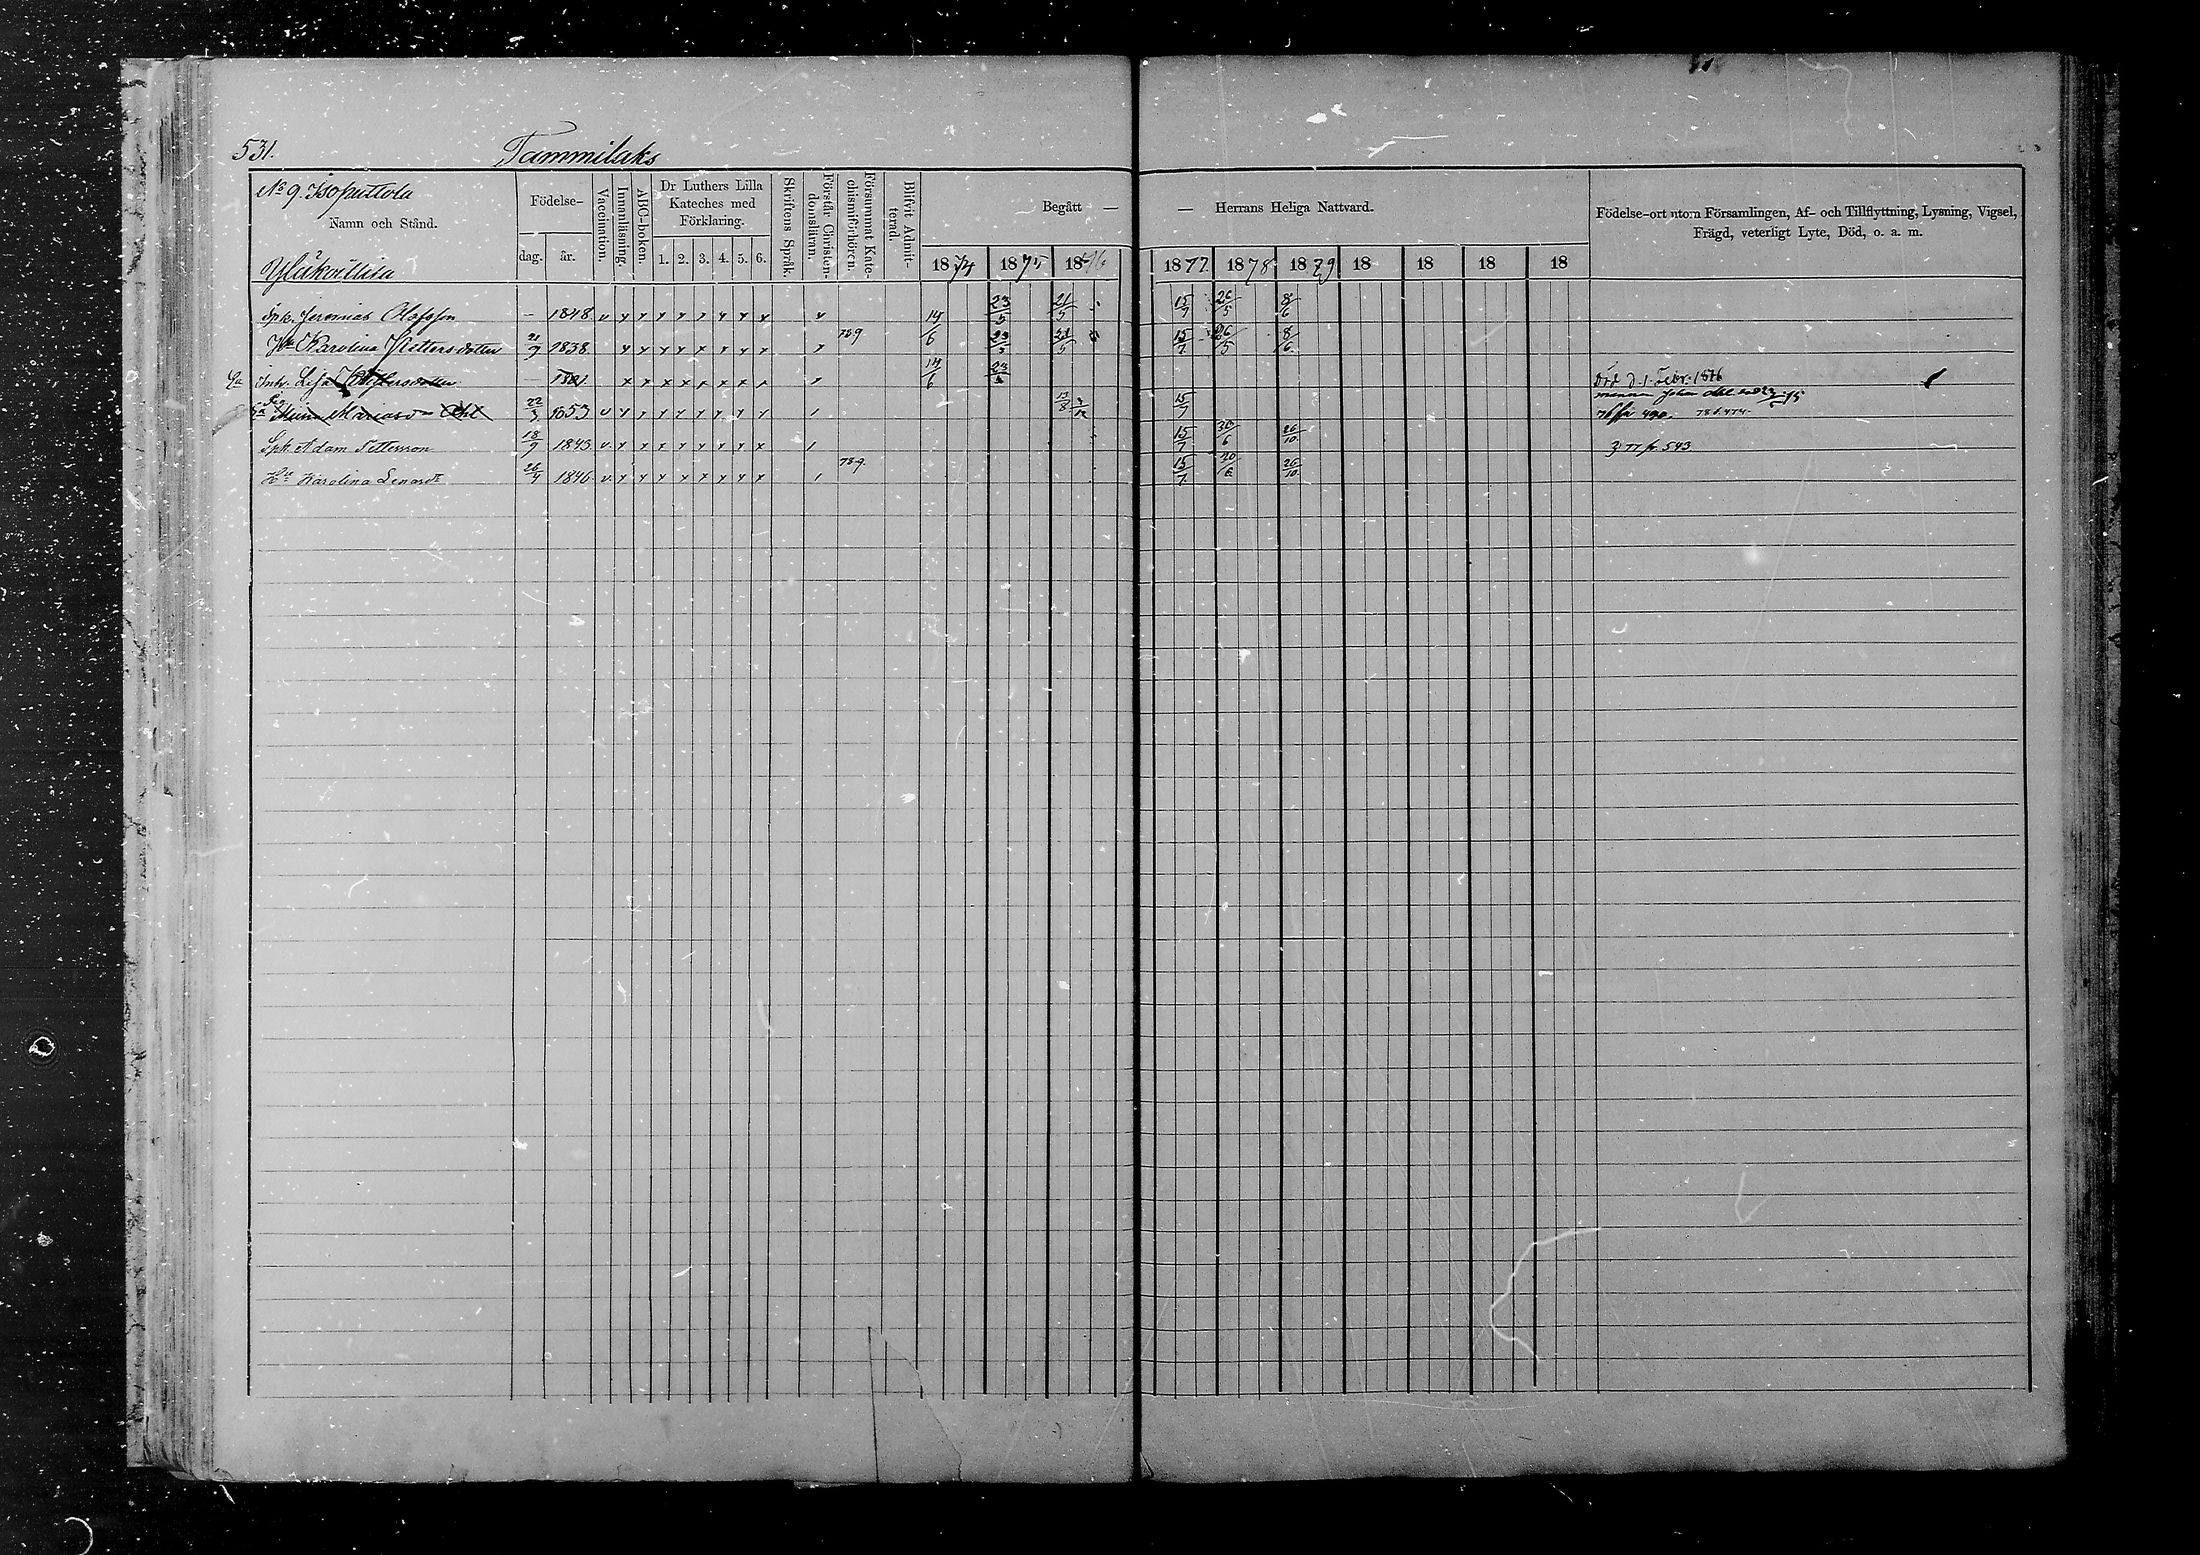 531. Tammilaks
No 9. Isoputtola
Namn och Stånd.
Födelse-
dag. år.
Vaccination.
Innanläsning.
ABC-boken.
Dr Luthers Lilla Kateches med Förklaring.
1. 2. 3. 4. 5. 6.
Skriftens Språk.
Förstår Christendomsläran.
Försummat Katechismiförhören.
Blifvit Admitterad.
Begått — — Herrans Heliga Nattvard.
1874 1875 1876 1877 1878 1879 18 18 18 18
Födelse-ort utom Församlingen, Af- och Tillflyttning, Lysning, Vigsel,
Frägd, veterligt Lyte, Död, o. a. m.
Spk. Jeremias Olofsson – 1848 v x x x x x x x x x 14/6 23/5 21/5 15/7 26/5 8/6
Hu Karolina Pettersdotter 21/9 1838 x x x x x x x x x 789 23/5 21/5 15/7 26/5 8/6
Enk. Lisa — 1801 x x x x x x x x 14/6 23/5 Död d. 1. Febr. 1876
22/3 1853 v 15/7 mannen Johan
78 f. 474.
Spk Adam Pettersson 18/9 1843 v x x x x x x x x 15/7 30/6 26/10 77 fr 543.
Hu Karolina Lenardr 26/4 1846 v x x x x x x x x 789 15/7 26/10